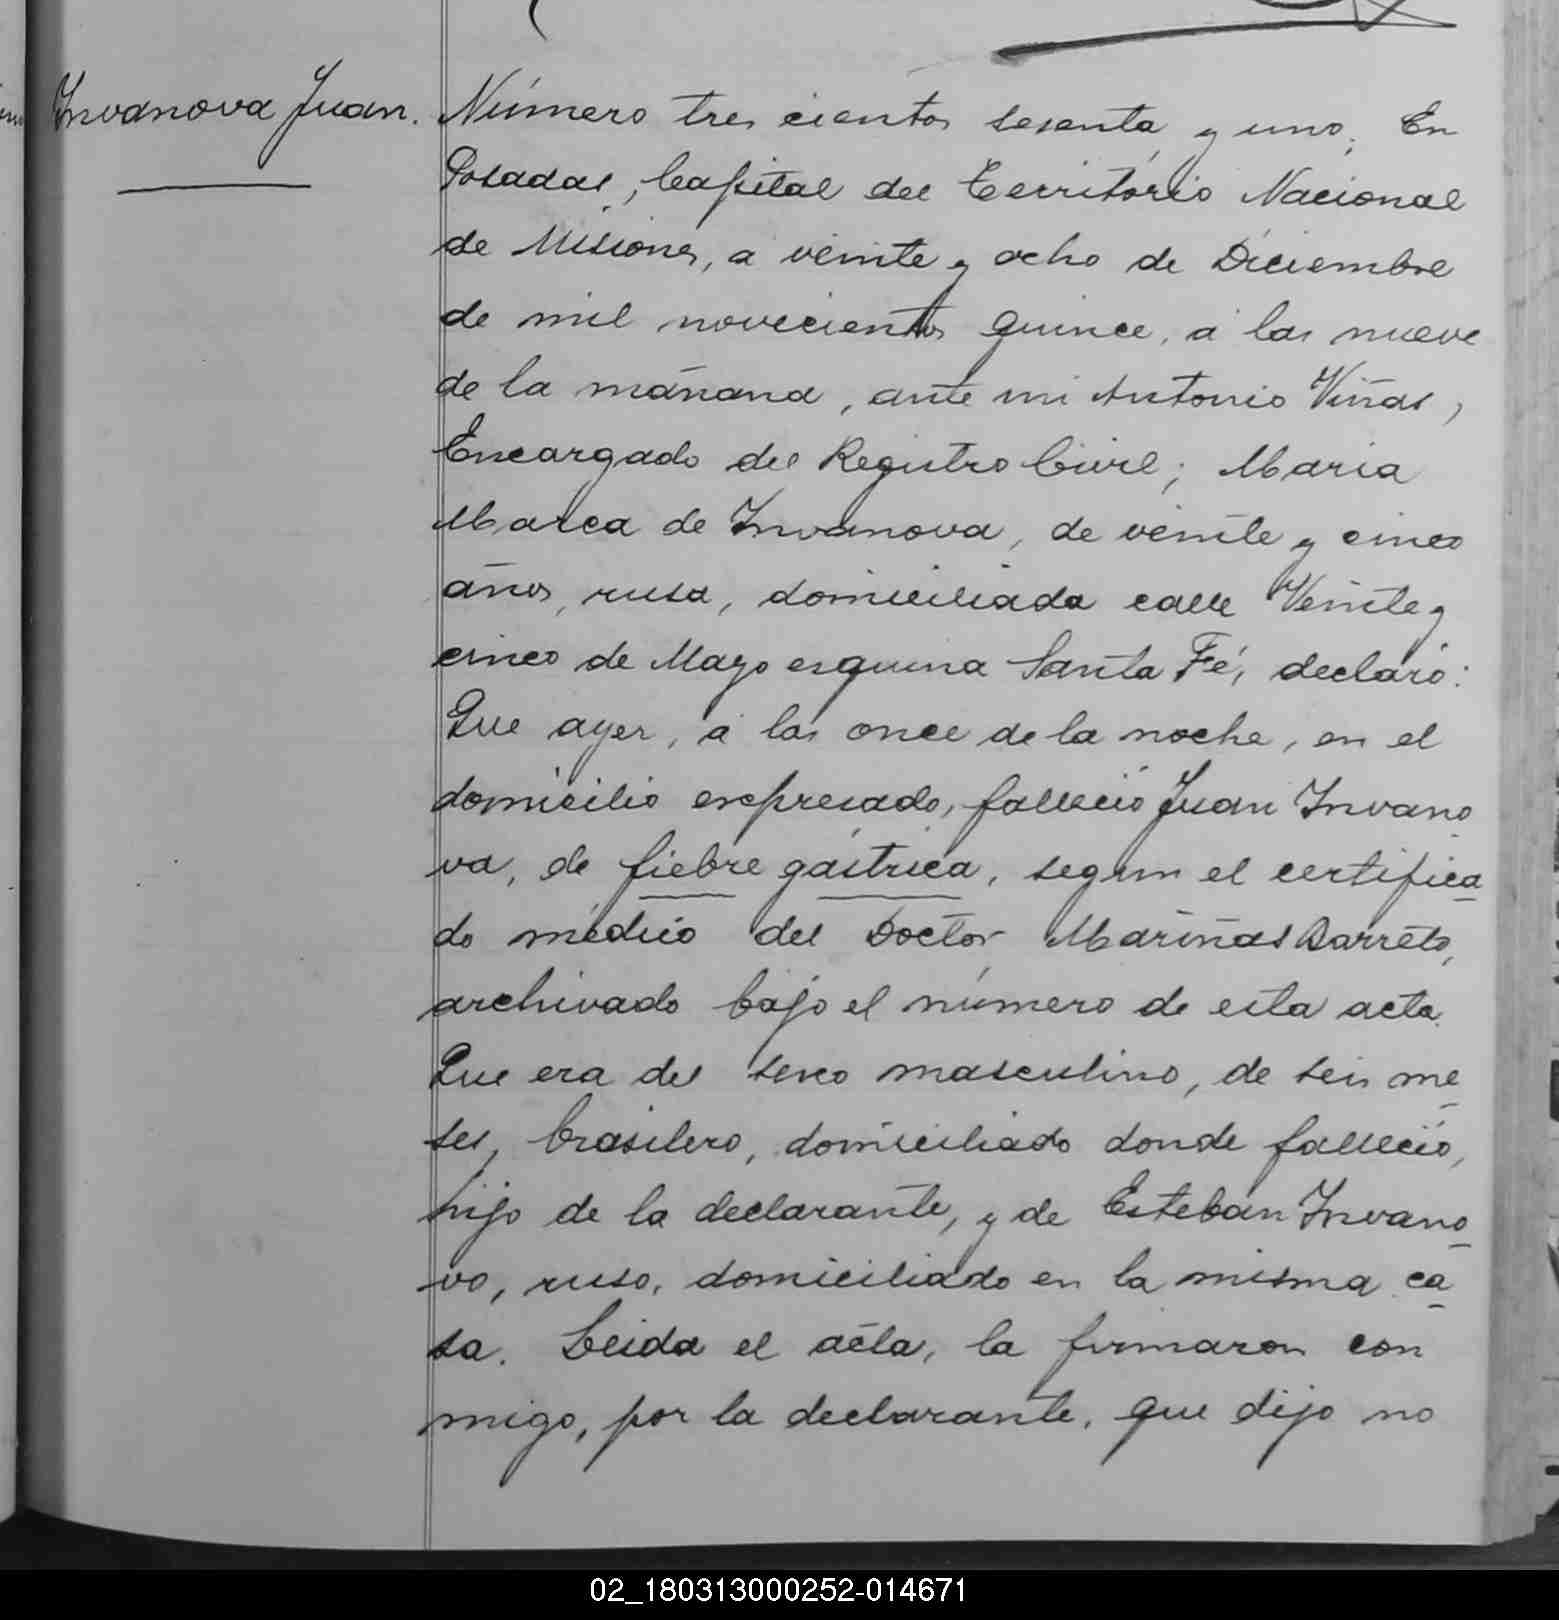 Invanova Juan.
Número tres cientos sesenta y uno. En
Posadas, Capital del Territorio Nacional
de Misiones, a veinte y ocho de Diciembre
de mil novecientos quince, á las nueve
de la mañana, ante mi Antonio Viñas,
Encargado del Registro Civil; Maria
Marca de Invanova, de veinte y cinco
años, rusa, domiciliada calle Veinte y
cinco de Mayo esquina Santa Fé, declaró:
Que ayer, á las once de la noche, en el
domicilio expresado, falleció Juan Invano
va, de fiebre gástrica, segun el certifica
do médico del Doctor Mariñas Barreto,
archivado bajo el número de esta acta.
Que era del sexo masculino, de seis me
ses, brasilero, domiciliado donde falleció,
hijo de la declarante, y de Esteban Invano
vo, ruso, domiciliado en la misma ca
sa. Leida el acta, la firmaron con
migo, por la declarante, que dijo no
02_180313000252-014671